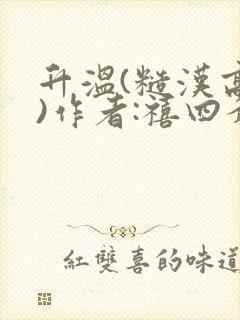 升溫(糙漢高
)作者:禧四
紅雙喜的味道